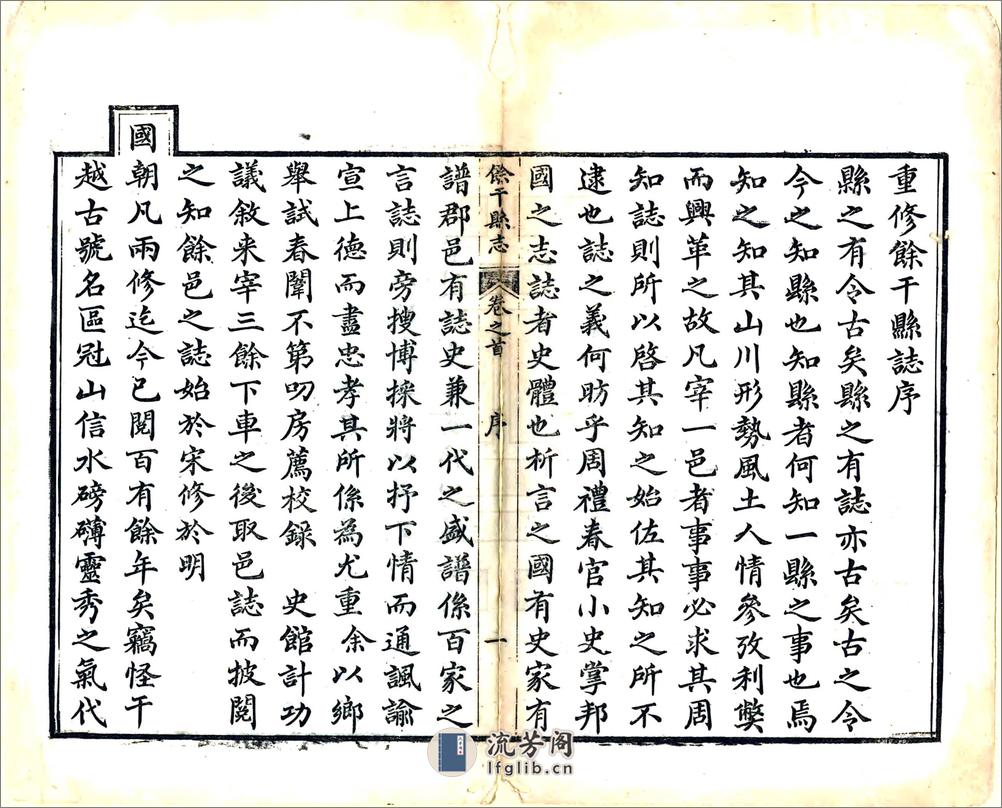 重修餘干縣誌序
縣之有令古矣縣之有誌亦古矣古之令
今之知縣也知縣者何知一縣之事也焉
知之知其山川形勢風土人情參攷利獘
而興革之故凡宰一邑者事事必求其周
知誌則所以啓其知之始佐其知之所不
逮也誌之義何昉乎周禮春官小史掌邦
國之志誌者史體也析言之國有史家有
餘干縣志
卷之首
序
一
譜郡邑有誌史兼一代之盛譜係百家之
言誌則旁搜博採將以抒下情而通諷諭
宣上德而盡忠孝其所係為尤重余以鄉
舉試春闈不第叨房薦校録 史館計功
議敘来宰三餘下車之後取邑誌而披閱
之知餘邑之誌始於宋修於明
國朝凡兩修迄今已閱百有餘年矣竊怪干
越古號名區冠山信水磅礴靈秀之氣代
流芳阁
lfglib.cn